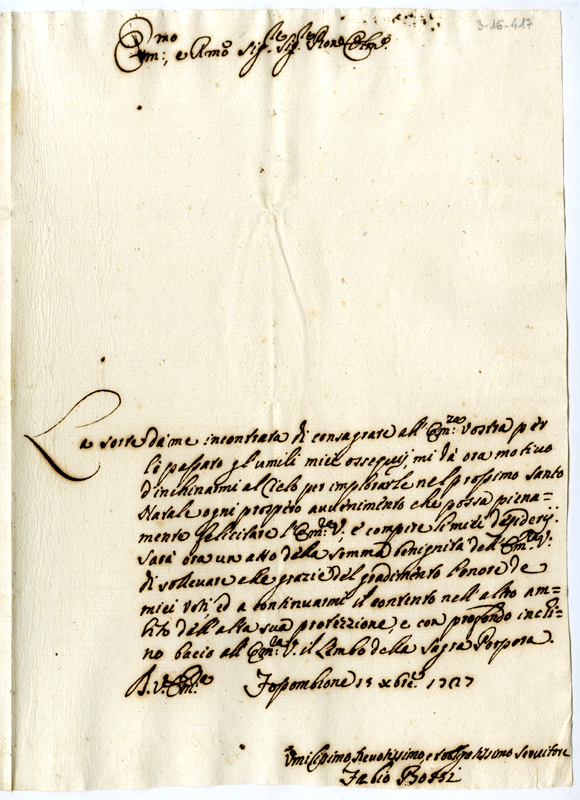 3-16-417
Em:mo, e Rmo Sig.re Sig.re Pron Colmo
La sorte da me incontrata di consagrare all' Em:za Vostra per
lo passato gl'umili miei ossequij, mi dà ora motivo
d'inchinarmi al Cielo per implorarle nel prossimo Santo
Natale ogni prospero avvenimento che possa piena=
mente felicitare l'Em:za V., e compire li miei desiderij.
Sarà ora un atto della somma benignità dell'Em:za V:
di sollevare alle grazie del gradimento l'onore de
miei voti, ed a continuarmi il contento nell'alto am=
bito dell'alta sua protezzione, e con profondo inchi=
no bacio all'Em:za V. il Lembo della Sagra Porpora.
D. V. Em:za Fossombrone 15 Xbre 1727
Umilissimo, Devotissimo, e Servitore
Fabio